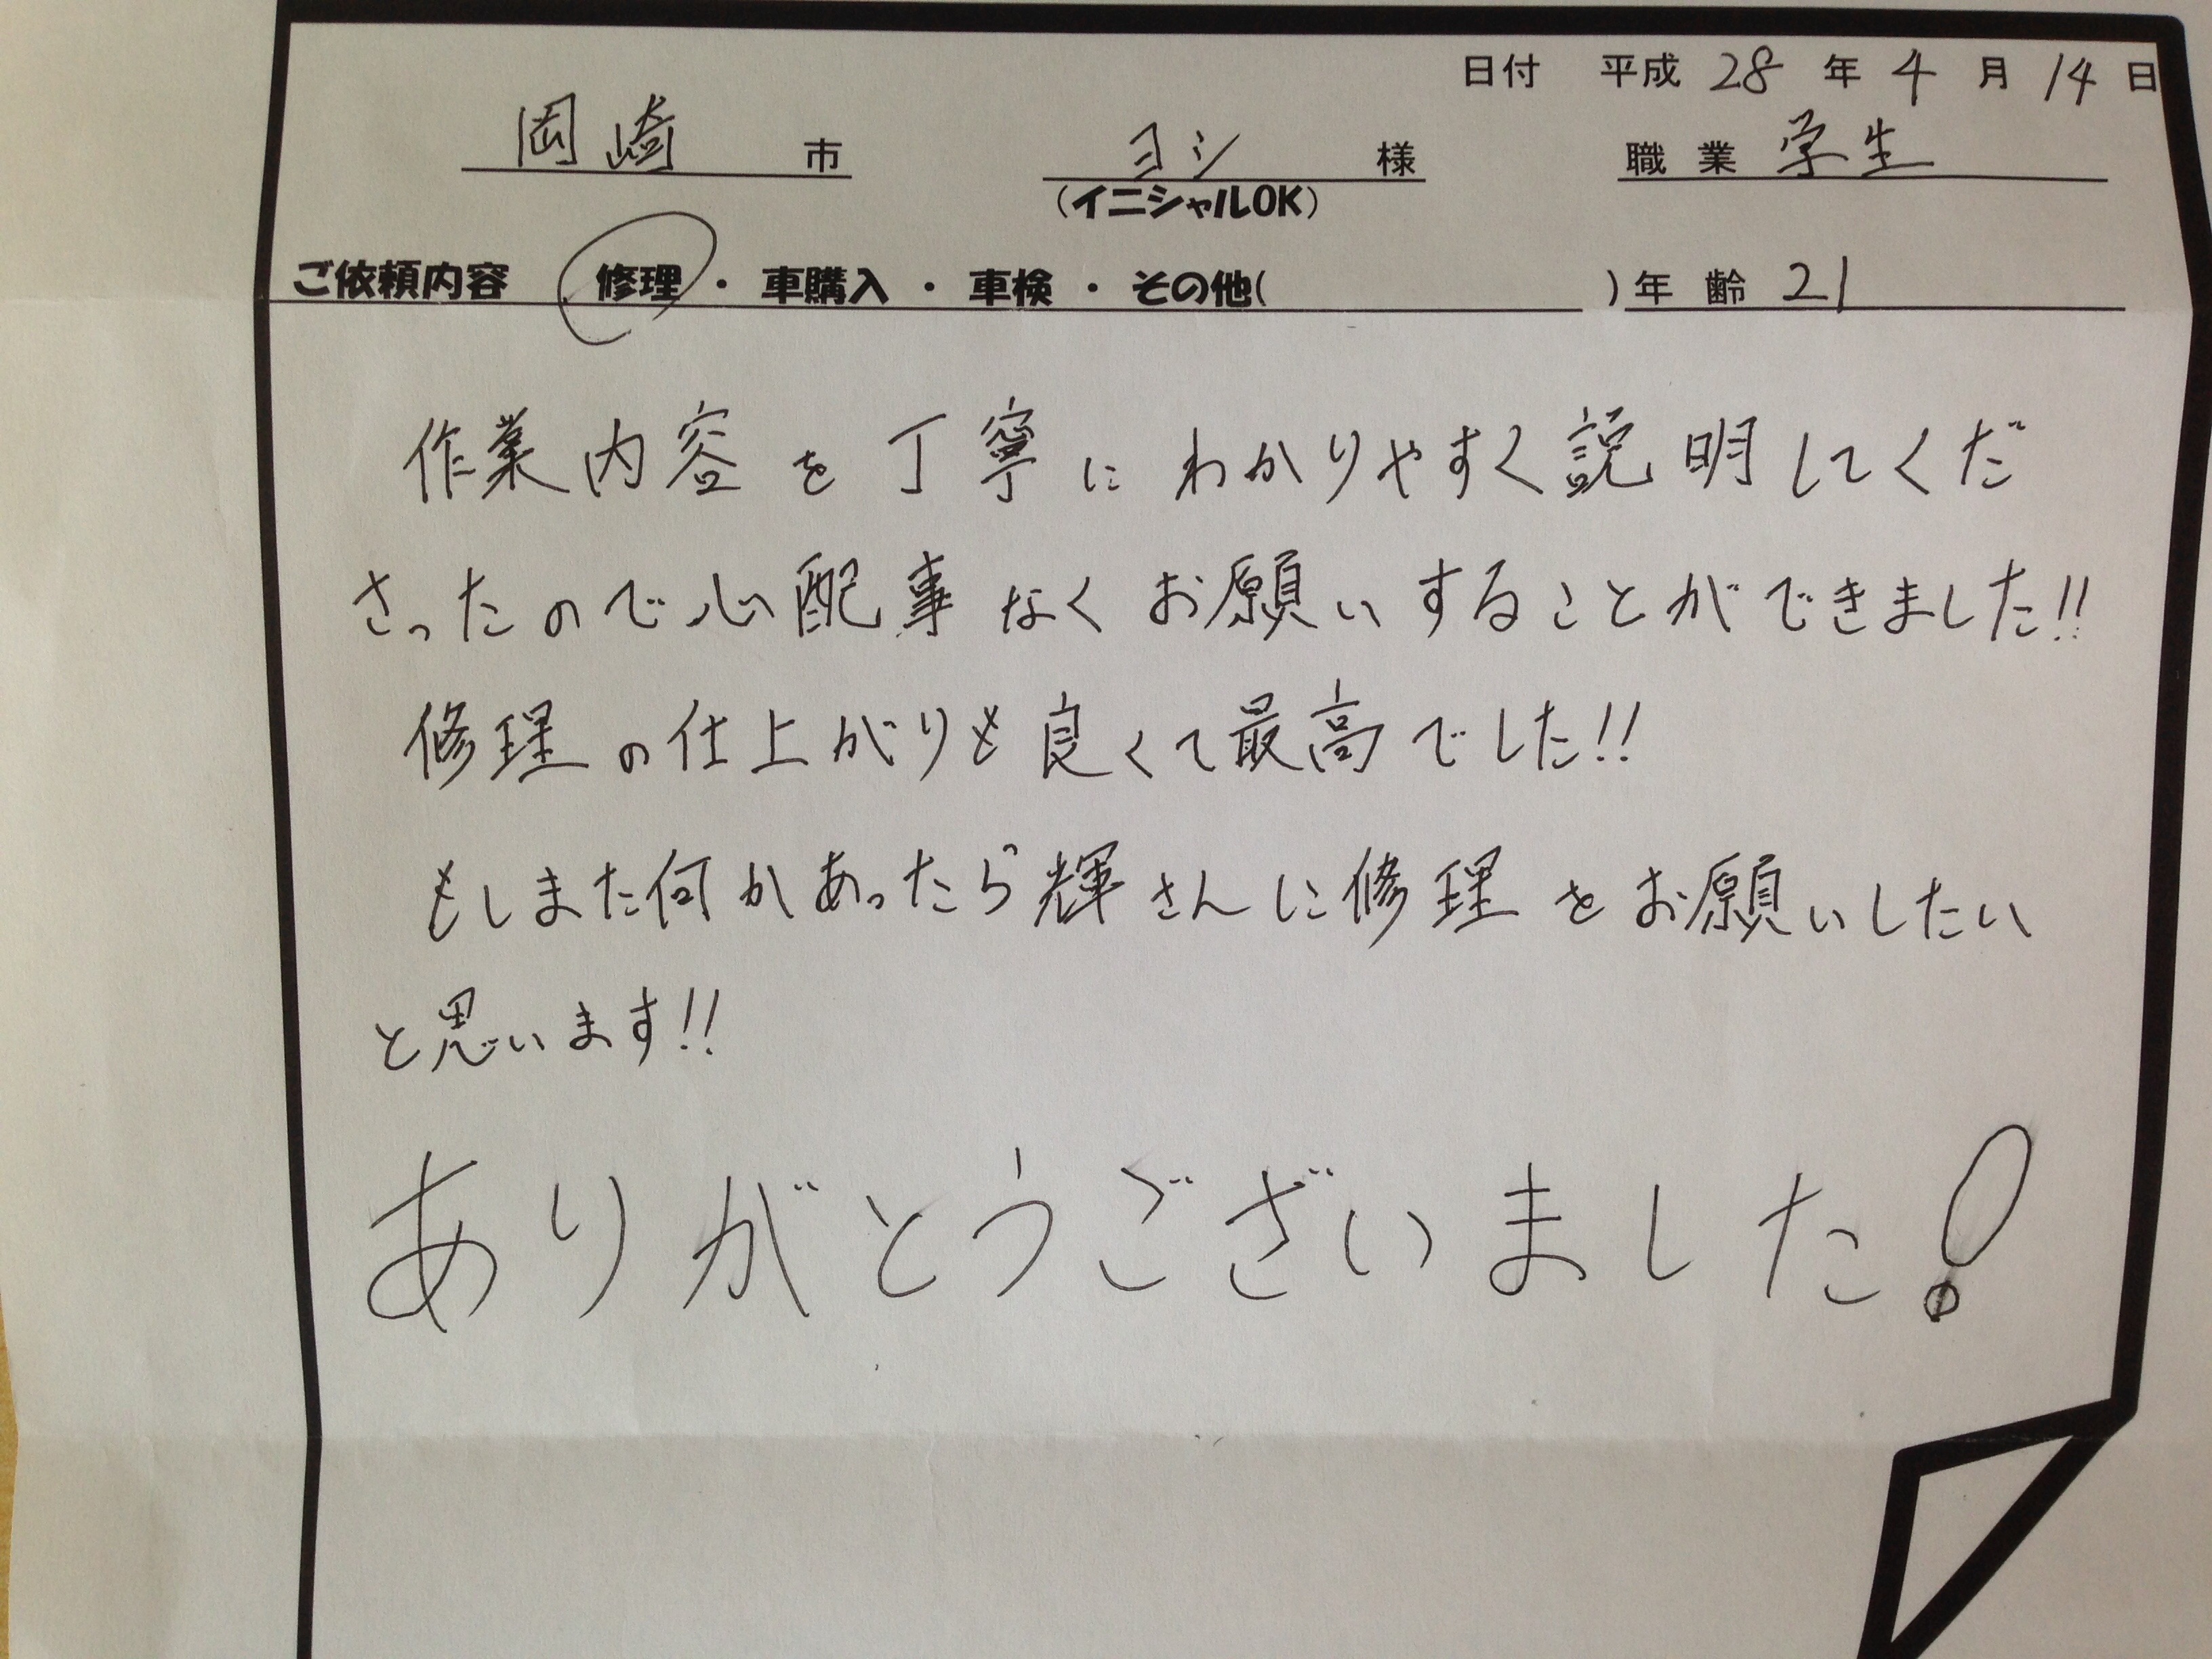 日付 平成 28 年 4 月 14 日
岡崎 市 ヨシ 様 職業 学生
(イニシャルOK)
ご依頼内容 修理・車購入・車検・その他( )年齢 21
作業内容を丁寧にわかりやすく説明してくだ
さったので心配事なくお願いすることができました!!
修理の仕上がりも良くて最高でした!!
もしまた何かあったら輝さんに修理をお願いしたい
と思います!!
ありがとうございました!